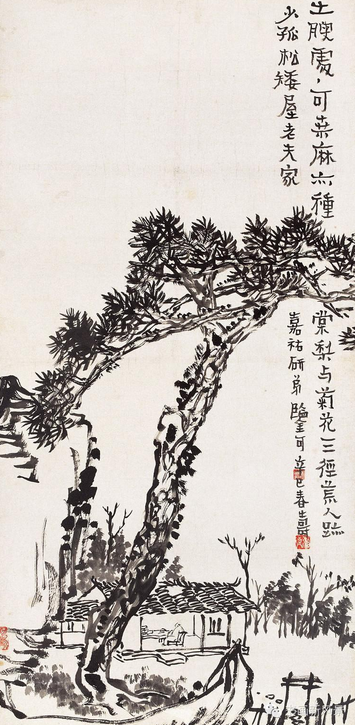 土腴處、可桑麻亦種棠梨与菊花三徑荒人跡
少孤松矮屋老夫家
嘉祐研弟鑒可辛巳春壽